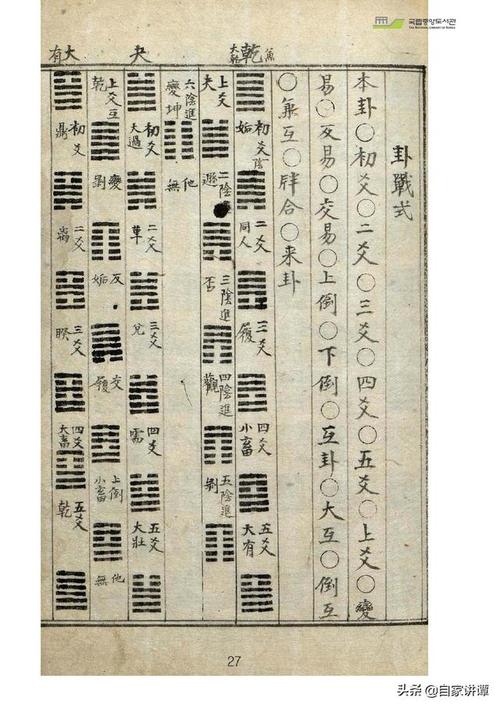 국립중앙도서관
THE NATIONAL LIBRARY OF KOREA
卦戰式
本卦○初爻○二爻○三爻○四爻○五爻○上爻○變
易○反易○交易○上倒○下倒○互卦○大互○倒互
○兼互○牉合○来卦
乾
初爻 姤
二爻 同人
三爻 履
四爻 小畜
五爻 大有
上爻 夬
二陰進 遯
三陰進 否
四陰進 觀
五陰進 剝
六陰進 變坤
他無
夬
初爻 大過
二爻 革
三爻 兌
四爻 需
五爻 大壯
上爻互 乾
變 剝
反 姤
交 履
上倒 小畜
他無
大有
初爻 鼎
二爻
三爻 睽
四爻 大畜
五爻 乾
27
头条 @自家讲谭